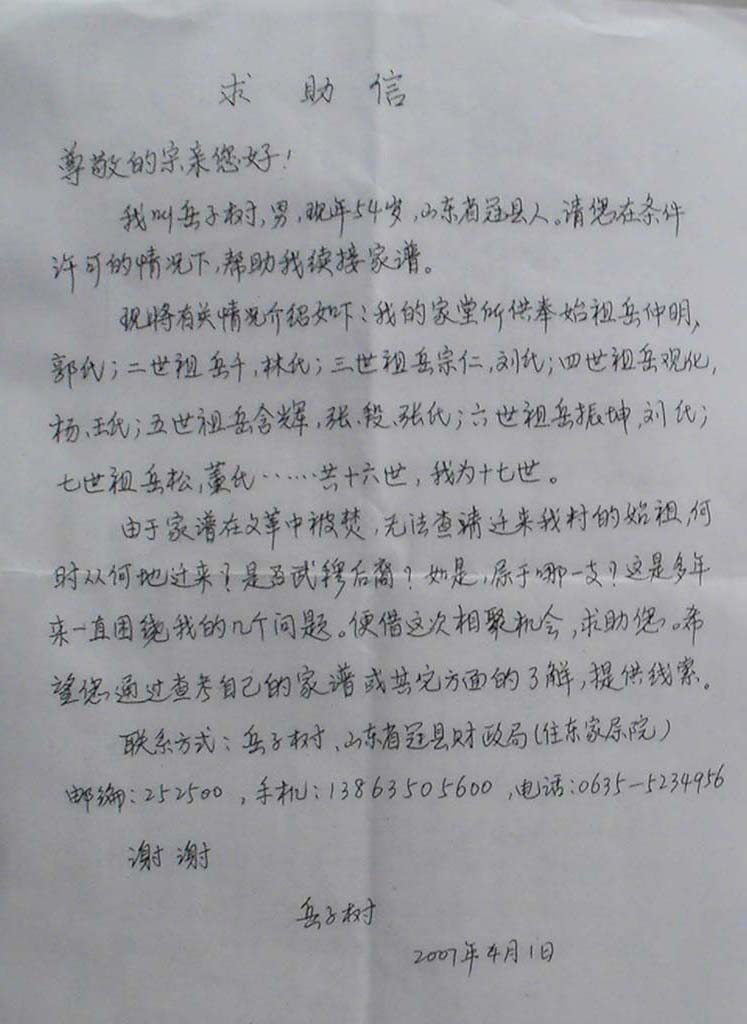 求助信
尊敬的宗亲您好!
我叫岳子树,男,现年54岁,山东省冠县人。请您在条件
许可的情况下,帮助我续接家谱。
现将有关情况介绍如下:我的家堂所供奉始祖岳仲明、
郭氏;二世祖岳千,林氏;三世祖岳宗仁,刘氏;四世祖岳观化,
杨、王氏;五世祖岳含辉,张、段、张氏;六世祖岳振坤,刘氏;
七世祖岳松,董氏……共十六世,我为十七世。
由于家谱在文革中被焚,无法查请迁来我村的始祖,何
时从何地迁来?是否武穆后裔?如是,属于哪一支?这是多年
来一直困绕我的几个问题。便借这次相聚机会,求助您。希
望您通过查考自己的家谱或其它方面的了解,提供线索。
联系方式:岳子树、山东省冠县财政局(住东家属院)
邮编:252500,手机:13863505600,电话:0635—5234956
谢谢
岳子树
2007年4月1日